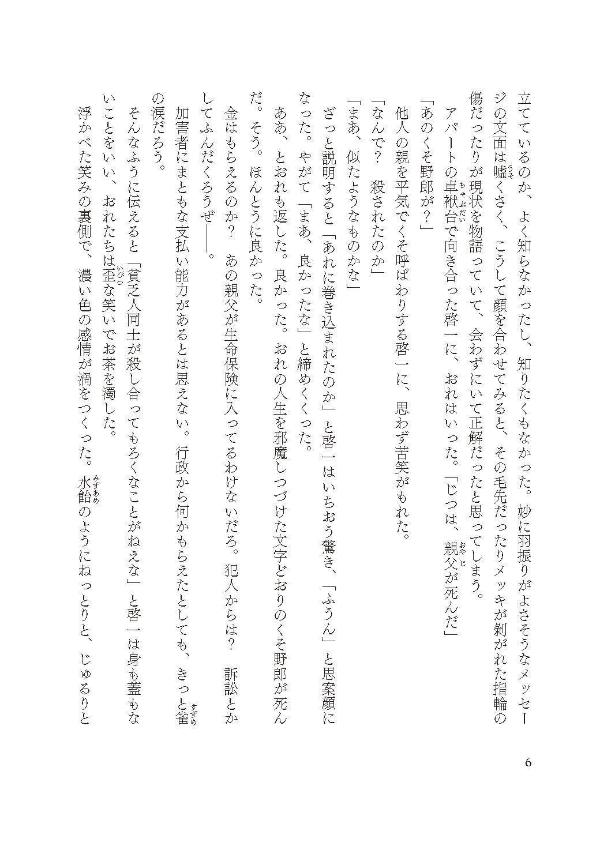 立てているのか、よく知らなかったし、知りたくもなかった。妙に羽振りがよさそうなメッセー
ジの文面は嘘くさく、こうして顔を合わせてみると、その毛先だったりメッキが剝がれた指輪の
傷だったりが現状を物語っていて、会わずにいて正解だったと思ってしまう。
　アパートの卓袱台で向き合った啓一に、おれはいった。「じつは、親父が死んだ」
「あのくそ野郎が？」
　他人の親を平気でくそ呼ばわりする啓一に、思わず苦笑がもれた。
「なんで？　殺されたのか」
「まあ、似たようなものかな」
　ざっと説明すると「あれに巻き込まれたのか」と啓一はいちおう驚き、「ふうん」と思案顔に
なった。やがて「まあ、良かったな」と締めくくった。
　ああ、とおれも返した。良かった。おれの人生を邪魔しつづけた文字どおりのくそ野郎が死ん
だ。そう。ほんとうに良かった。
　金はもらえるのか？　あの親父が生命保険に入ってるわけないだろ。犯人からは？　訴訟とか
してふんだくろうぜ――。
　加害者にまともな支払い能力があるとは思えない。行政から何かもらえたとしても、きっと雀
の涙だろう。
　そんなふうに伝えると「貧乏人同士が殺し合ってもろくなことがねえな」と啓一は身も蓋もな
いことをいい、おれたちは歪な笑いでお茶を濁した。
　浮かべた笑みの裏側で、濃い色の感情が渦をつくった。水飴のようにねっとりと、じゅるりと
6